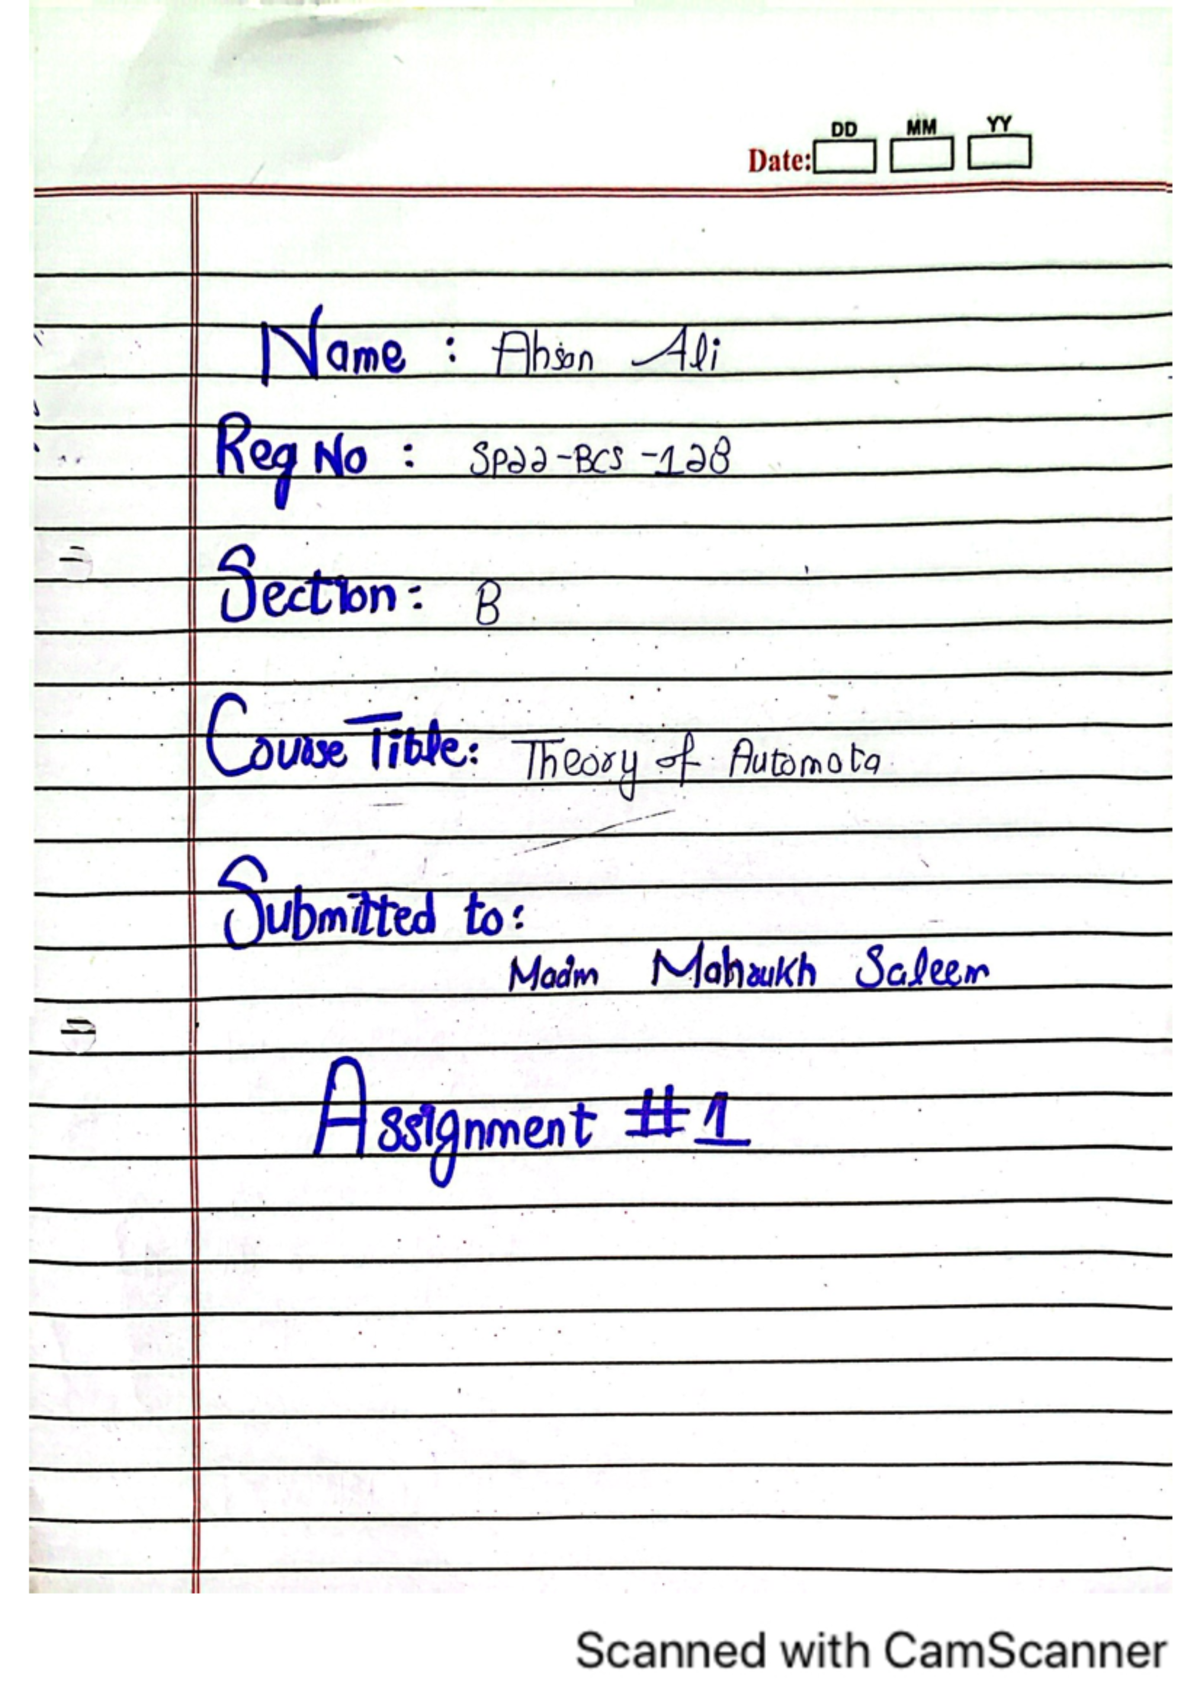 DD MM YY
Date:
Name : Ahsan Ali
Reg No : Sp22-BCS-128
Section: B
Course Title: Theory of Automata
Submitted to:
Madm Mahrukh Saleem
Assignment #1
Scanned with CamScanner